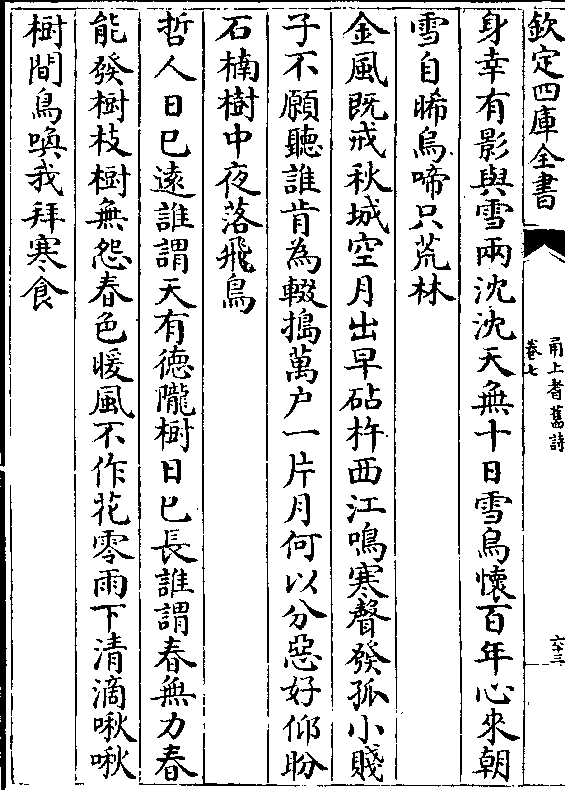 欽定四庫全書
甬上耆舊詩
卷七
六十三
身幸有影與雪兩沈沈天無十日雪烏懷百年心來朝
雪自晞烏啼只荒林
金風既戒秋城空月出早砧杵西江鳴寒聲發孤小賤
子不願聽誰肯為輟搗萬户一片月何以分惡好仰盼
石楠樹中夜落飛鳥
哲人日已遠誰謂天有德隴樹日已長誰謂春無力春
能發樹枝樹無怨春色暖風不作花零雨下清滴啾啾
樹間鳥喚我拜寒食